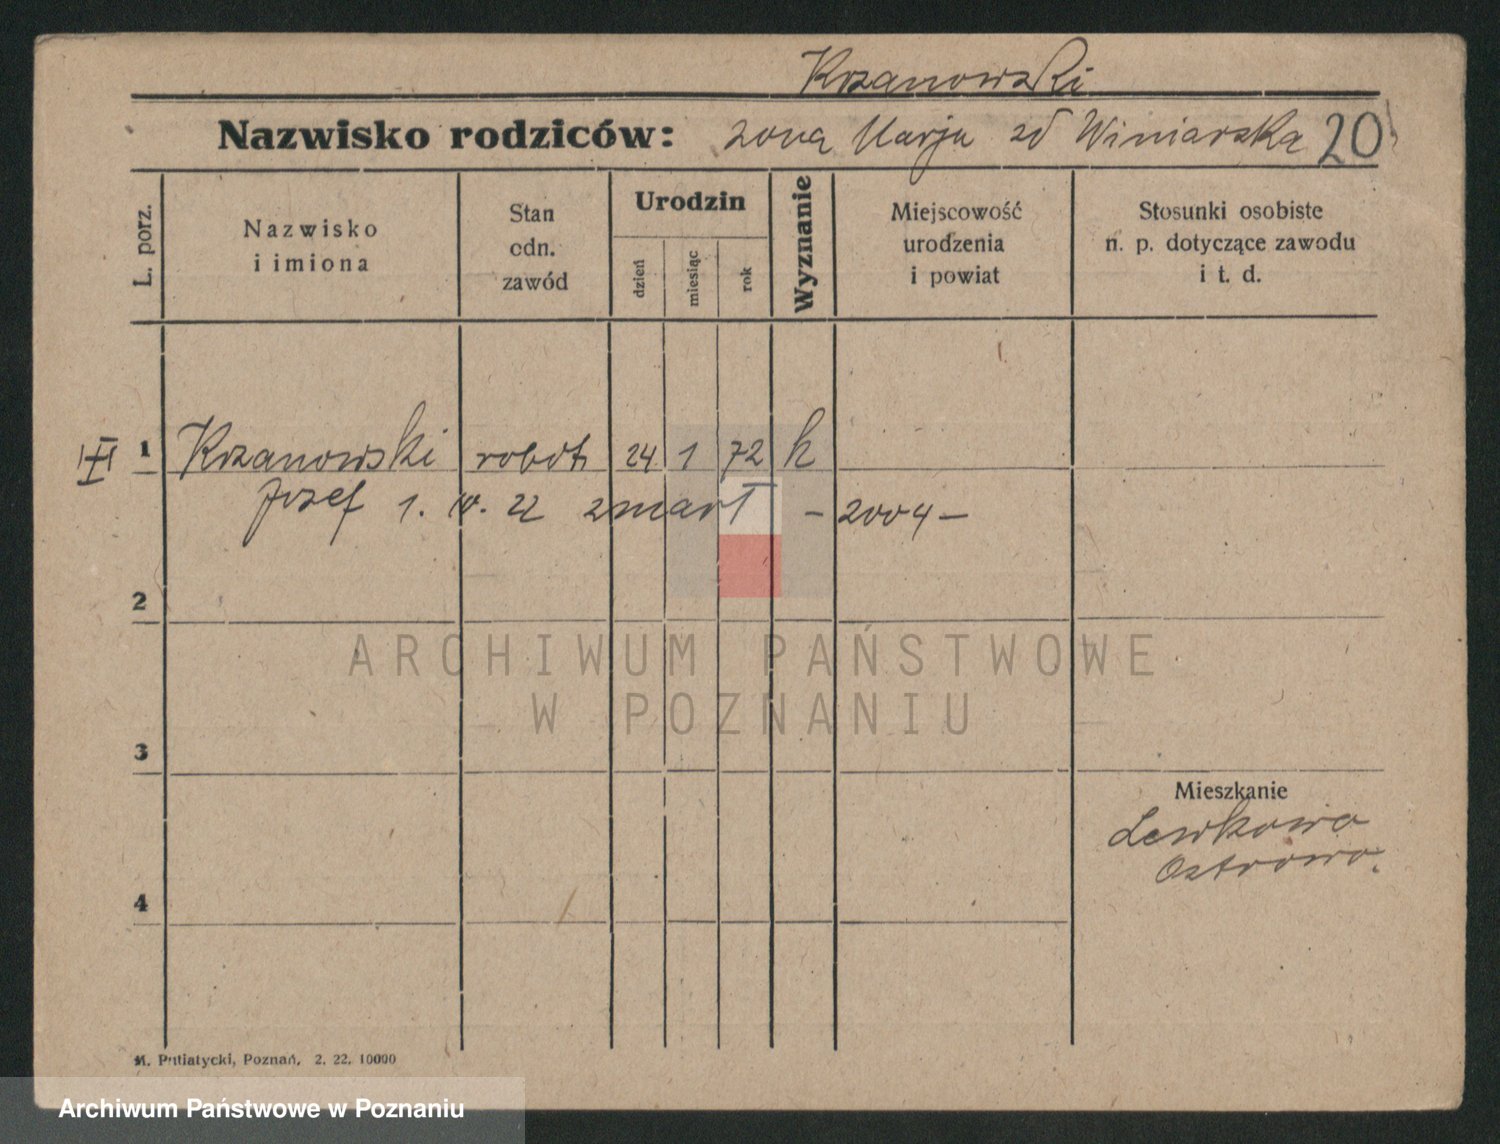 Krzanowski
Nazwisko rodziców: żona Marja zd Winiarska 20
L. porz.
Nazwisko
i imiona
Stan
odn.
zawód
Urodzin
dzień
miesiąc
rok
Wyznanie
Miejscowość
urodzenia
i powiat
Stosunki osobiste
n. p. dotyczące zawodu
i t. d.
III 1 Krzanowski robot. 24 1 72 k
Józef 1. IV. 22 zmarł - 2004 -
2
ARCHIWUM PAŃSTWOWE
W POZNANIU
3
Mieszkanie
Lewkowa
Ostrowo.
4
M. Putiatycki, Poznań, 2. 22. 10000
Archiwum Państwowe w Poznaniu